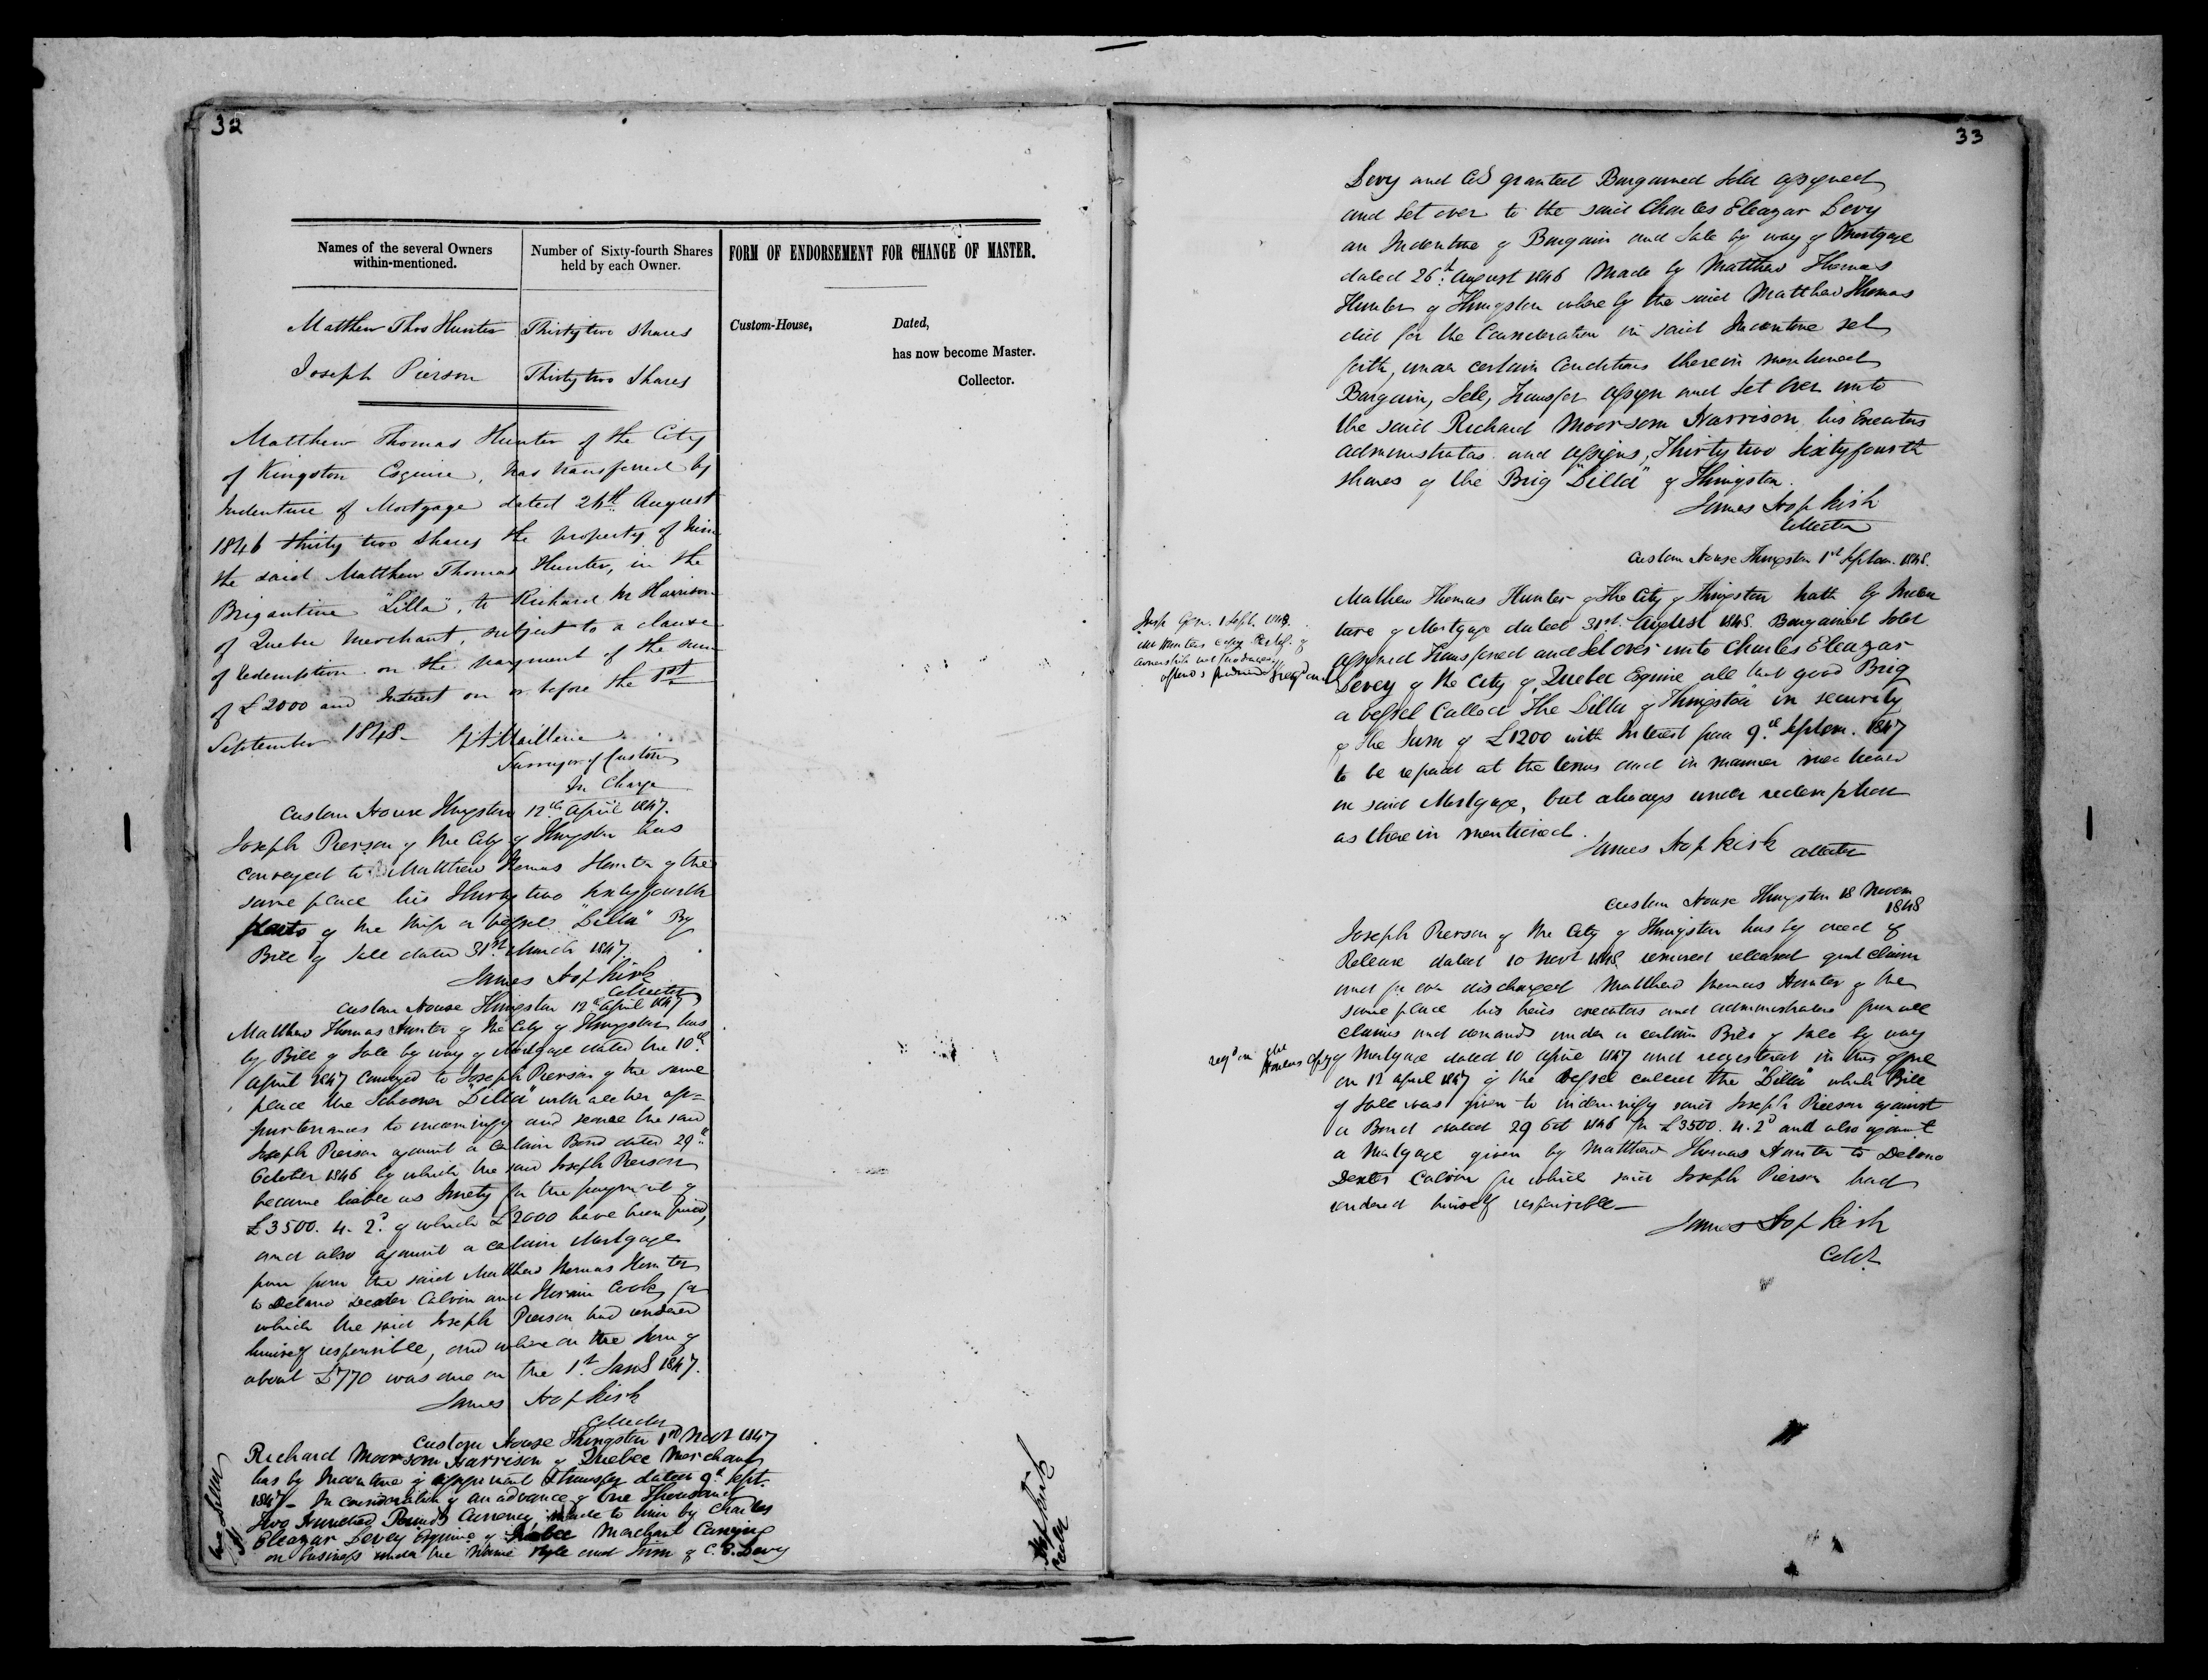 32
Names of the several Owners within-mentioned.
Number of Sixty-fourth Shares held by each Owner.
FORM OF ENDORSEMENT FOR CHANGE OF MASTER.
Matthew Thos Hunter Thirty two shares
Joseph Pierson Thirty two Shares
Custom-House, Dated,
has now become Master.
Collector.
Matthew Thomas Hunter of the City
of Kingston Esquire, has transferred by
Indenture of Mortgage dated 26th August
1846 thirty two shares the property of him
the said Matthew Thomas Hunter, in the
Brigantine "Lilla", to Richard M Harrison
of Quebec Merchant, subject to a clause
of redemption on the payment of the sum
of £2000 and Interest on or before the 1st
September 1848-
Surveyor of Customs
In Charge
Custom House Kingston 12th April 1847.
Joseph Pierson of the City of Kingston has
conveyed to Matthew Thomas Hunter of the
same place his Thirty two sixty fourth
parts of the Ship or vessel "Lilla" By
Bill of Sale dated 31st March 1847.
James Hopkirk
Collector
Custom House Kingston 12th April 1847
Matthew Thomas Hunter of the City of Kingston has
by Bill of Sale by way of Mortgage dated the 10th
April 1847 conveyed to Joseph Pierson of the same
place the Schooner "Lilla" with all her ap-
purtenances to indemnify and secure the said
Joseph Pierson against a certain Bond dated 29th
October 1846 by which the said Joseph Pierson
became liable as Surety for the payment of
£3500. 4. 2d of which £2000 have been paid,
and also against a certain Mortgage
from the said Matthew Thomas Hunter
to Delano Dexter Calvin and Hiram Cook for
which the said Joseph Pierson had rendered
himself responsible, and where on the Sum of
about £770 was due on the 1st Jan 1847.
James Hopkirk
Collector
Custom House Kingston 1st Novr 1847
Richard Moorsom Harrison of Quebec Merchant
has by Indenture of assignment & transfer dated 9th Sept.
1847- In consideration of an advance of One Thousand
Two Hundred Pounds Currency made to him by Charles
Eleazar Levey Esquire of Quebec Merchant Carrying
on business under the Name style and Firm of C. E. Levy
Hopkirk
Coller
33
Levy and Co granted Bargained Sold assigned
and Set over to the said Charles Eleazar Levy
an Indenture of Bargain and Sale by way of Mortgage
dated 26th August 1846 Made by Matthew Thomas
Hunter of Kingston where by the said Matthew Thomas
did for the Consideration in said Indenture set
forth, under certain Conditions therein mentioned
Bargain, Sell, Transfer Assign and Set Over unto
the said Richard Moorsom Harrison his Executors
administrators and assigns, Thirty two Sixty fourth
shares of the Brig "Lilla" of Kingston.
James Hopkirk
Collector
Custom House Kingston 1st Septem. 1848.
Mathew Thomas Hunter of the City of Kingston hath by Inden
ture of Mortgage dated 31st August 1848. Bargained Sold
Assigned Transfered and Set over unto Charles Eleazar
Levey of the City of Quebec Esquire all that good Brig
or vessel Called The Lilla of Kingston in security
of the Sum of £1200 with Interest from 9th Septem. 1847
to be repaid at the terms and in manner mentioned
in said Mortgage, but always under redemption
as therein mentioned.
James Hopkirk Collector
Custom House Kingston 18 Novem
1848
Joseph Pierson of the City of Kingston has by deed of
Release dated 10 Novr 1848 remised released quit claim
and for ever discharged Matthew Thomas Hunter of the
same place his heirs executors and administrators from all
claims and demands under a certain Bill of Sale by way
of Mortgage dated 10 April 1847 and registered in this office
on 12 April 1847 of the Vessel called the "Lilla" which Bill
of Sale was given to indemnify said Joseph Pierson against
a Bond dated 29 Oct 1846 for £3500. 4. 2d and also against
a Mortgage given by Matthew Thomas Hunter to Delano
Dexter Calvin for which said Joseph Pierson had
rendered himself responsible—
James Hopkirk
Collr